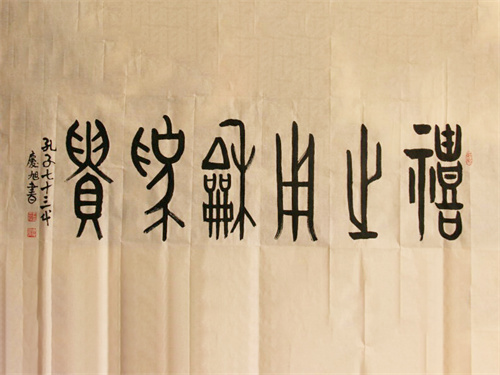 禮之用龢為貴
孔子七十三代
慶旭書